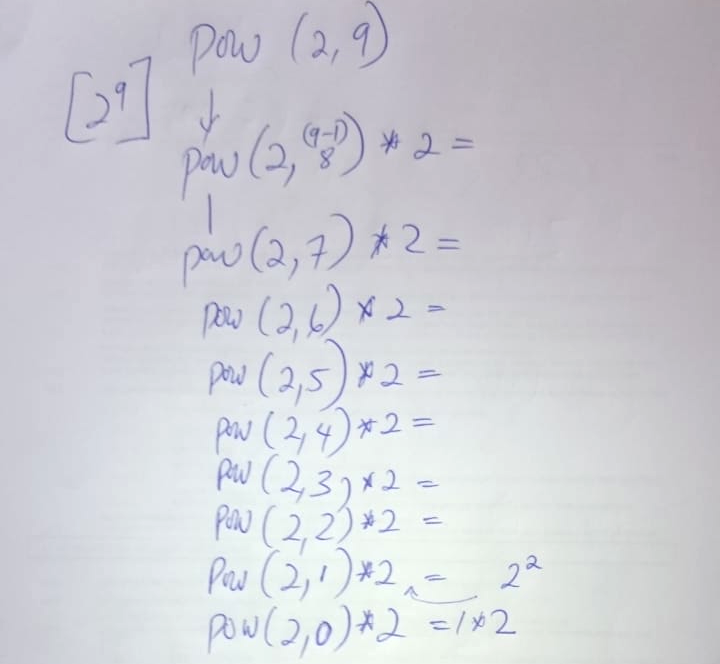 pow (2,9)
[2⁹]
↓
pow (2, (9-1) 8) * 2 =
pow (2,7) * 2 =
pow (2,6) * 2 =
pow (2,5) * 2 =
pow (2,4) * 2 =
pow (2,3) * 2 =
pow (2,2) * 2 =
pow (2,1) * 2 = 2²
pow (2,0) * 2 = 1 * 2